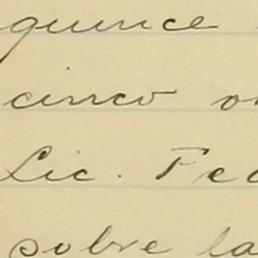 quince
cinco
Lic.
sobre la